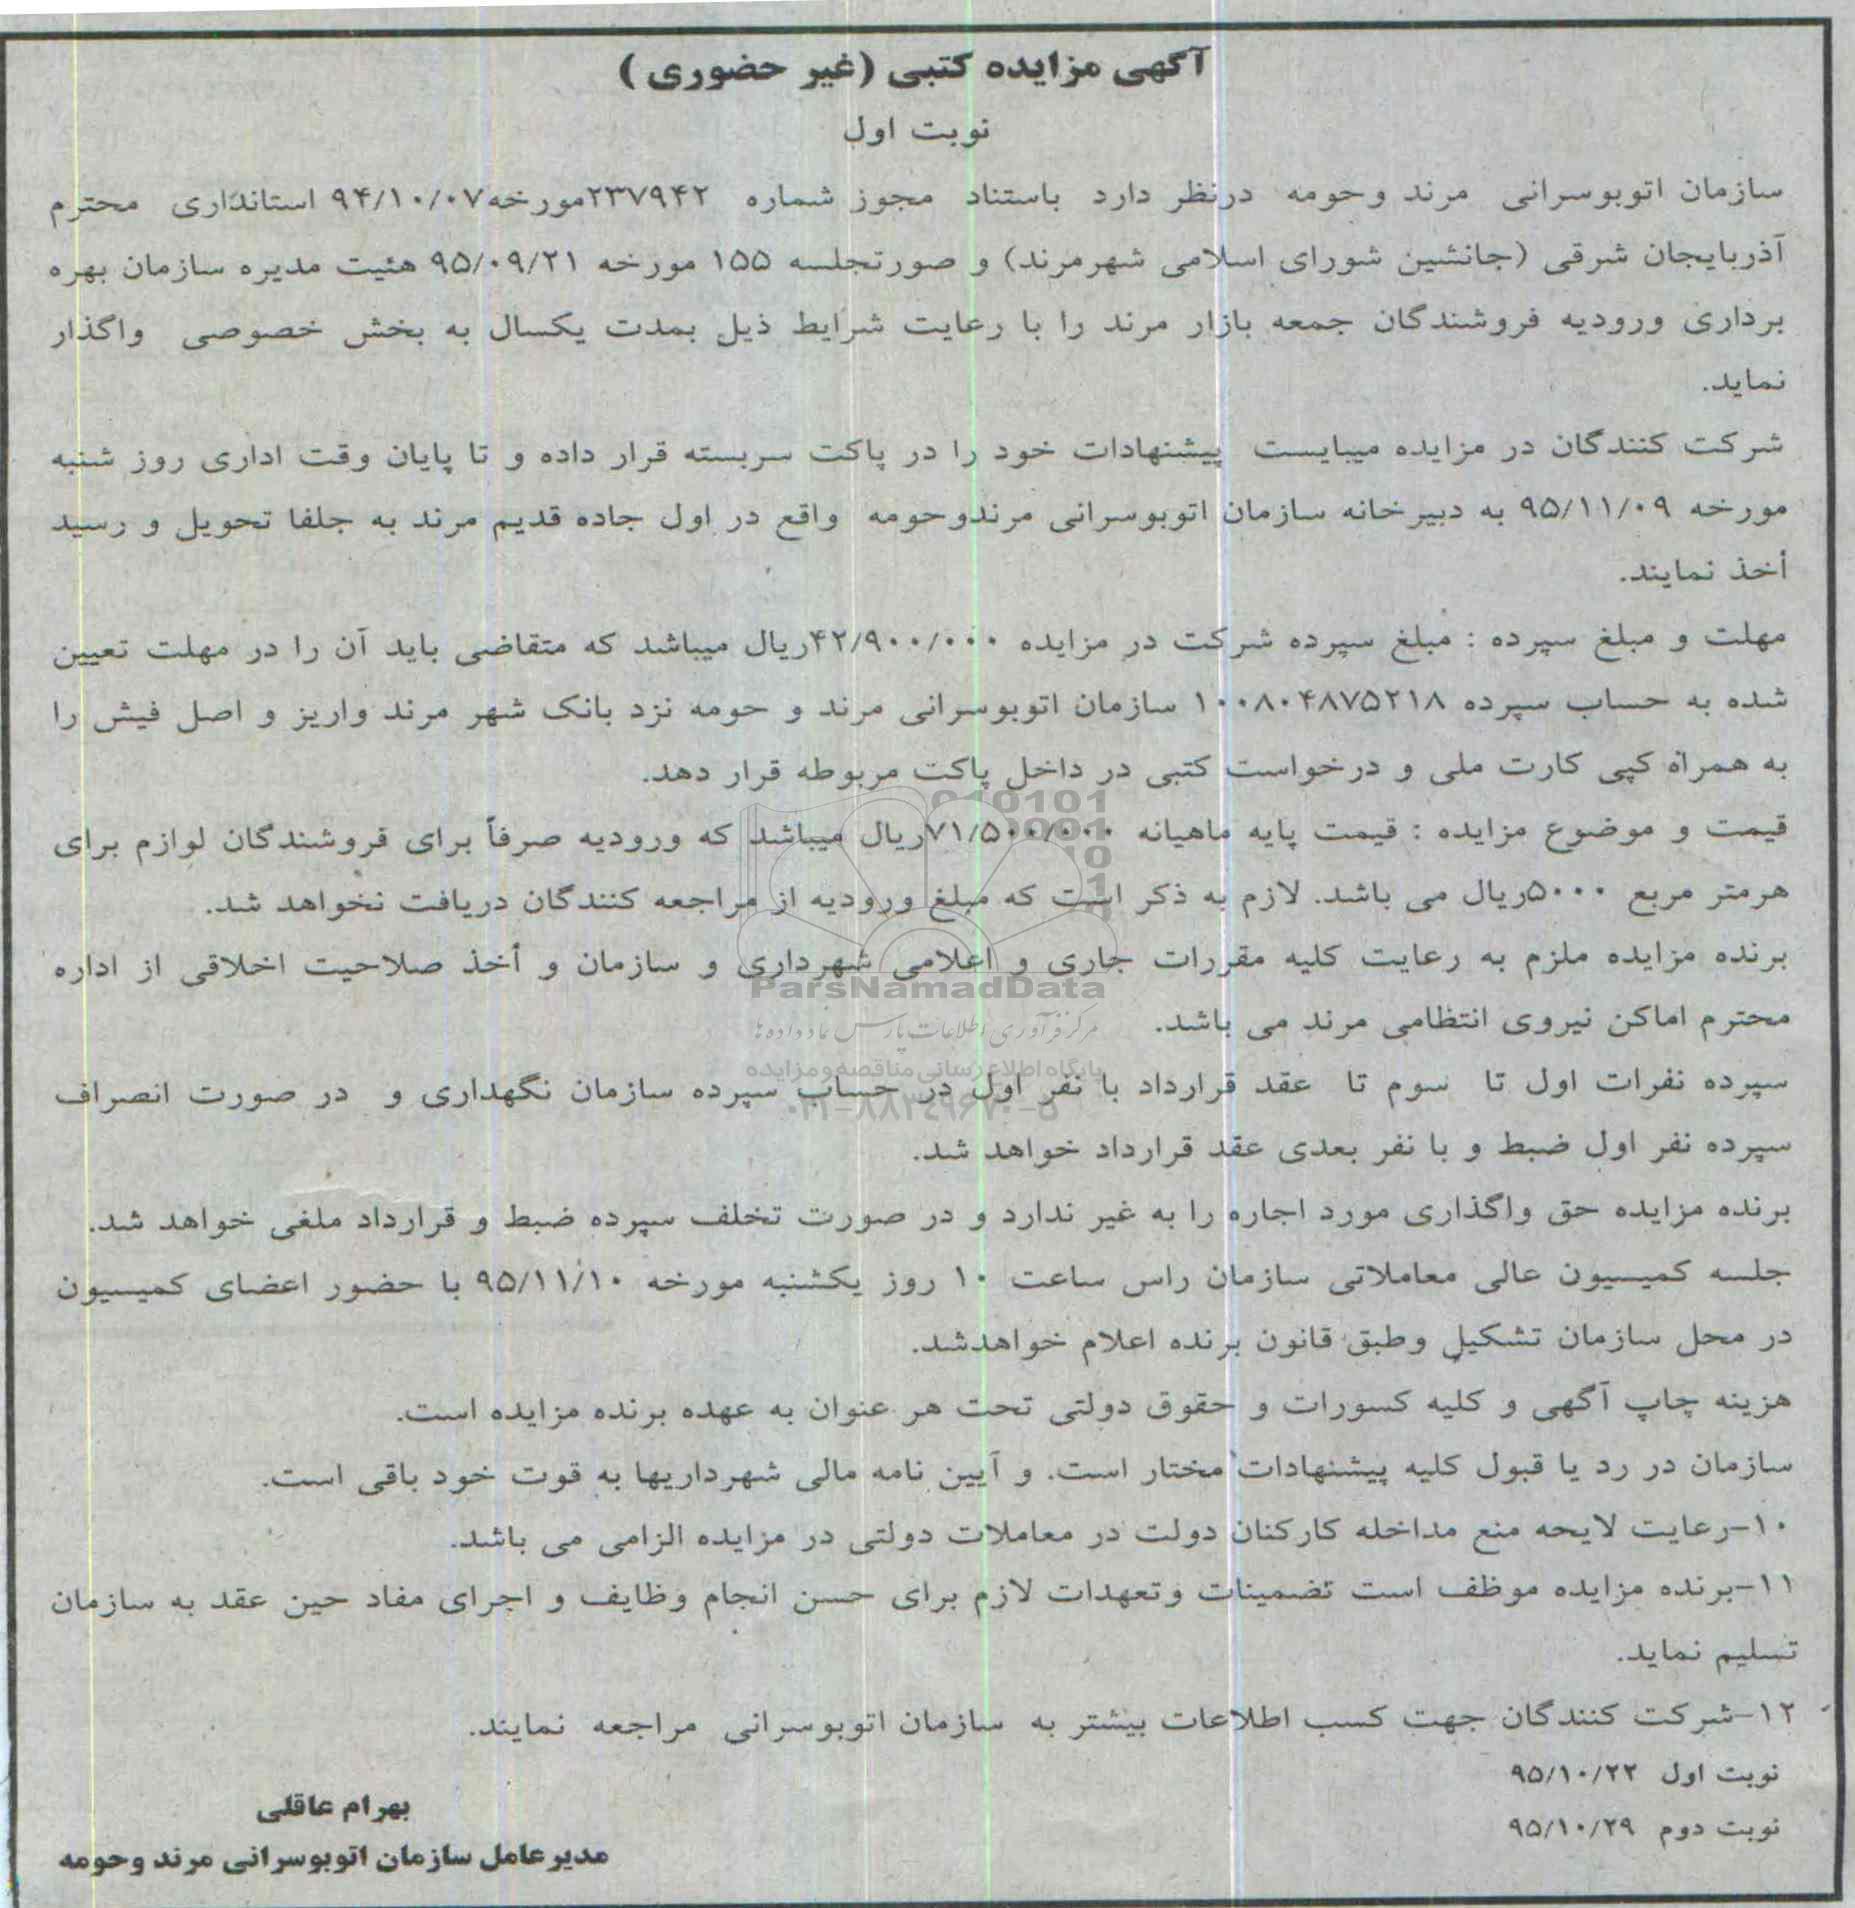 آگهی مزایده کتبی (غیر حضوری )
نوبت اول
سازمان اتوبوسرانی مرند وحومه درنظر دارد باستناد مجوز شماره ۲۳۷۹۴۲مورخه۹۴/۱۰/۰۷ استانداری محترم
آذربایجان شرقی (جانشین شورای اسلامی شهرمرند) و صورتجلسه ۱۵۵ مورخه ۹۵/۰۹/۲۱ هئیت مدیره سازمان بهره
برداری ورودیه فروشندگان جمعه بازار مرند را با رعایت شرایط ذیل بمدت یکسال به بخش خصوصی واگذار
نماید.
شرکت کنندگان در مزایده میبایست پیشنهادات خود را در پاکت سربسته قرار داده و تا پایان وقت اداری روز شنبه
مورخه ۹۵/۱۱/۰۹ به دبیرخانه سازمان اتوبوسرانی مرندوحومه واقع در اول جاده قدیم مرند به جلفا تحویل و رسید
أخذ نمایند.
مهلت و مبلغ سپرده : مبلغ سپرده شرکت در مزایده ۴۲/۹۰۰/۰۰۰ریال میباشد که متقاضی باید آن را در مهلت تعیین
شده به حساب سپرده ۱۰۰۸۰۴۸۷۵۲۱۸ سازمان اتوبوسرانی مرند و حومه نزد بانک شهر مرند واریز و اصل فیش را
به همراه کپی کارت ملی و درخواست کتبی در داخل پاکت مربوطه قرار دهد.
قیمت و موضوع مزایده : قیمت پایه ماهیانه ۷۱/۵۰۰/۰۰۰ریال میباشد که ورودیه صرفاً برای فروشندگان لوازم برای
هرمتر مربع ۵۰۰۰ریال می باشد. لازم به ذکر است که مبلغ ورودیه از مراجعه کنندگان دریافت نخواهد شد.
برنده مزایده ملزم به رعایت کلیه مقررات جاری و اعلامی شهرداری و سازمان و أخذ صلاحیت اخلاقی از اداره
ParsNamadData
محترم اماکن نیروی انتظامی مرند می باشد.
مرکز فرآوری اطلاعات پارس نماد داده ها
پایگاه اطلاع رسانی مناقصه و مزایده
سپرده نفرات اول تا سوم تا عقد قرارداد با نفر اول در حساب سپرده سازمان نگهداری و در صورت انصراف
۰۲۱-۸۸۳۴۹۶۷۰-۵
سپرده نفر اول ضبط و با نفر بعدی عقد قرارداد خواهد شد.
برنده مزایده حق واگذاری مورد اجاره را به غیر ندارد و در صورت تخلف سپرده ضبط و قرارداد ملغی خواهد شد.
جلسه کمیسیون عالی معاملاتی سازمان راس ساعت ۱۰ روز یکشنبه مورخه ۹۵/۱۱/۱۰ با حضور اعضای کمیسیون
در محل سازمان تشکیل وطبق قانون برنده اعلام خواهدشد.
هزینه چاپ آگهی و کلیه کسورات و حقوق دولتی تحت هر عنوان به عهده برنده مزایده است.
سازمان در رد یا قبول کلیه پیشنهادات مختار است. و آیین نامه مالی شهرداریها به قوت خود باقی است.
۱۰-رعایت لایحه منع مداخله کارکنان دولت در معاملات دولتی در مزایده الزامی می باشد.
۱۱-برنده مزایده موظف است تضمینات وتعهدات لازم برای حسن انجام وظایف و اجرای مفاد حین عقد به سازمان
تسلیم نماید.
۱۲-شرکت کنندگان جهت کسب اطلاعات بیشتر به سازمان اتوبوسرانی مراجعه نمایند.
نوبت اول ۹۵/۱۰/۲۲
نوبت دوم ۹۵/۱۰/۲۹
بهرام عاقلی
مدیرعامل سازمان اتوبوسرانی مرند وحومه